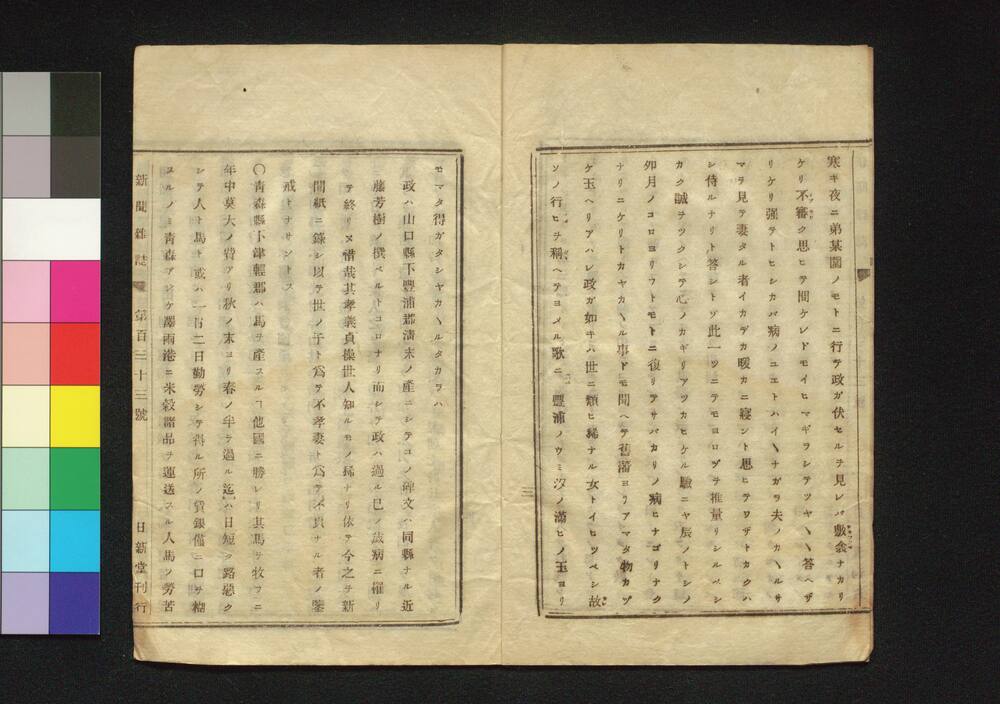 寒キ夜ニ弟某園ノモトニ行テ政ガ伏セルヲ見レバ敷衾ナカリ
ケリ不審ク思ヒテ問ケレドモイヒマギヲシテツヤヽヽ答ヘザ
リケリ强テトヒシカバ病ノユエトハイヘナガラ夫ノカヽルサ
マヲ見テ妻タル者イカデカ暖カニ寢ント思ヒテワザトカクハ
シ侍ルナリト答シトゾ此一ツニテモヨロヅヲ推量リシルベシ
カク誠ヲツクシテ心ノカギリアツカヒケル驗ニヤ辰ノトシノ
卯月ノコロヨリフトモトニ復リテサバカリノ病ヒナゴリナク
ナリニケリトカヤカヽル事ドモ聞ヘテ舊藩ヨリアマタ物カヅ
ケ玉ヘリアハレ政ガ如キハ世ニ類ヒ稀ナル女トイヒツベシ故
ソノ行ヒヲ稱ヘテヨメル歌ニ 豐浦ノウミ汐ノ滿ヒノ玉ヨリ
モマタ得ガタシヤカヽルタカラハ
政ハ山口縣下豐浦郡淸末ノ產ニシテコノ碑文ハ同縣ナル近
藤芳樹ノ撰ベルトコロナリ而シテ政ハ過ル巳ノ歲病ニ罹リ
テ終リヌ惜哉其孝義貞操世人知ルモノ稀ナリ依テ今之ヲ新
聞紙ニ錄シ以テ世ノ子ト爲テ不孝妻ト爲テ不貞ナル者ノ鑒
戒トナサントス
〇靑森縣下津輕郡ハ馬ヲ產スルヿ他國ニ勝レリ其馬ヲ牧フニ
年中莫大ノ費アリ秋ノ末ヨリ春ノ半ヲ過ル迄ハ日短ク路惡ク
シテ人ト馬ト或ハ一日二日勤勞シテ得ル所ノ賃銀僅ニ口ヲ糊
スルノミ靑森アヂケ澤兩港ニ米穀諸品ヲ運送スル人馬ノ勞苦
新聞雜誌 第百三十三號 日新堂刊行